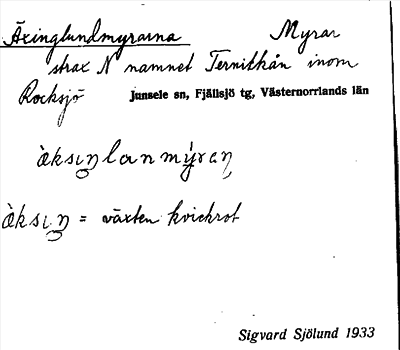 Äxinglundmyrarna Myrar
strax N namnet Ternitkån inom
Rocksjö Junsele sn, Fjällsjö tg, Västernorrlands län
àksıŋlanmýraŋ
àksıŋ = växten kvickrot
Sigvard Sjölund 1933